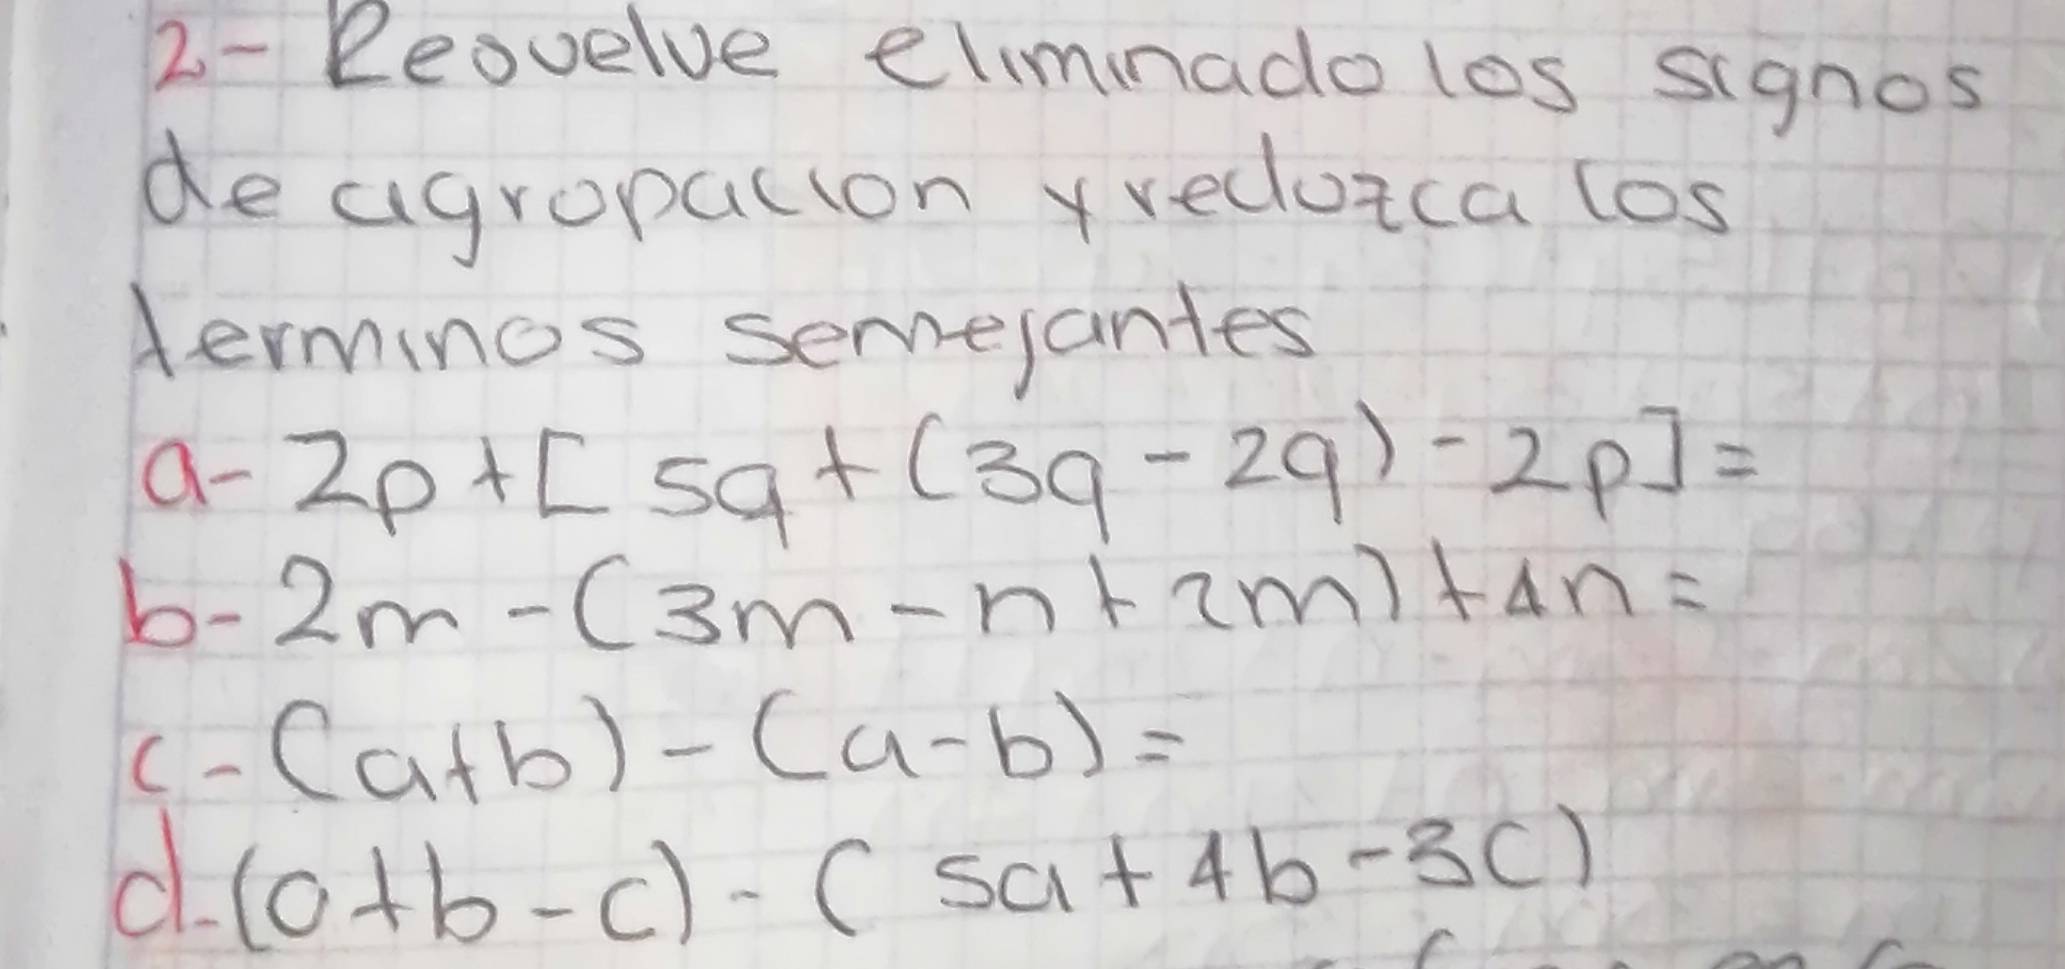 2- Resuelve eliminado los signos
de agrupacion y reduzca los
terminos semejantes
a- 2p + [ 5q + (3q - 2q) - 2p] =
b- 2m - (3m - n + 2m) + 4n =
c- (a+b) - (a-b) =
d- (a+b-c) - ( 5a + 4b - 3c)